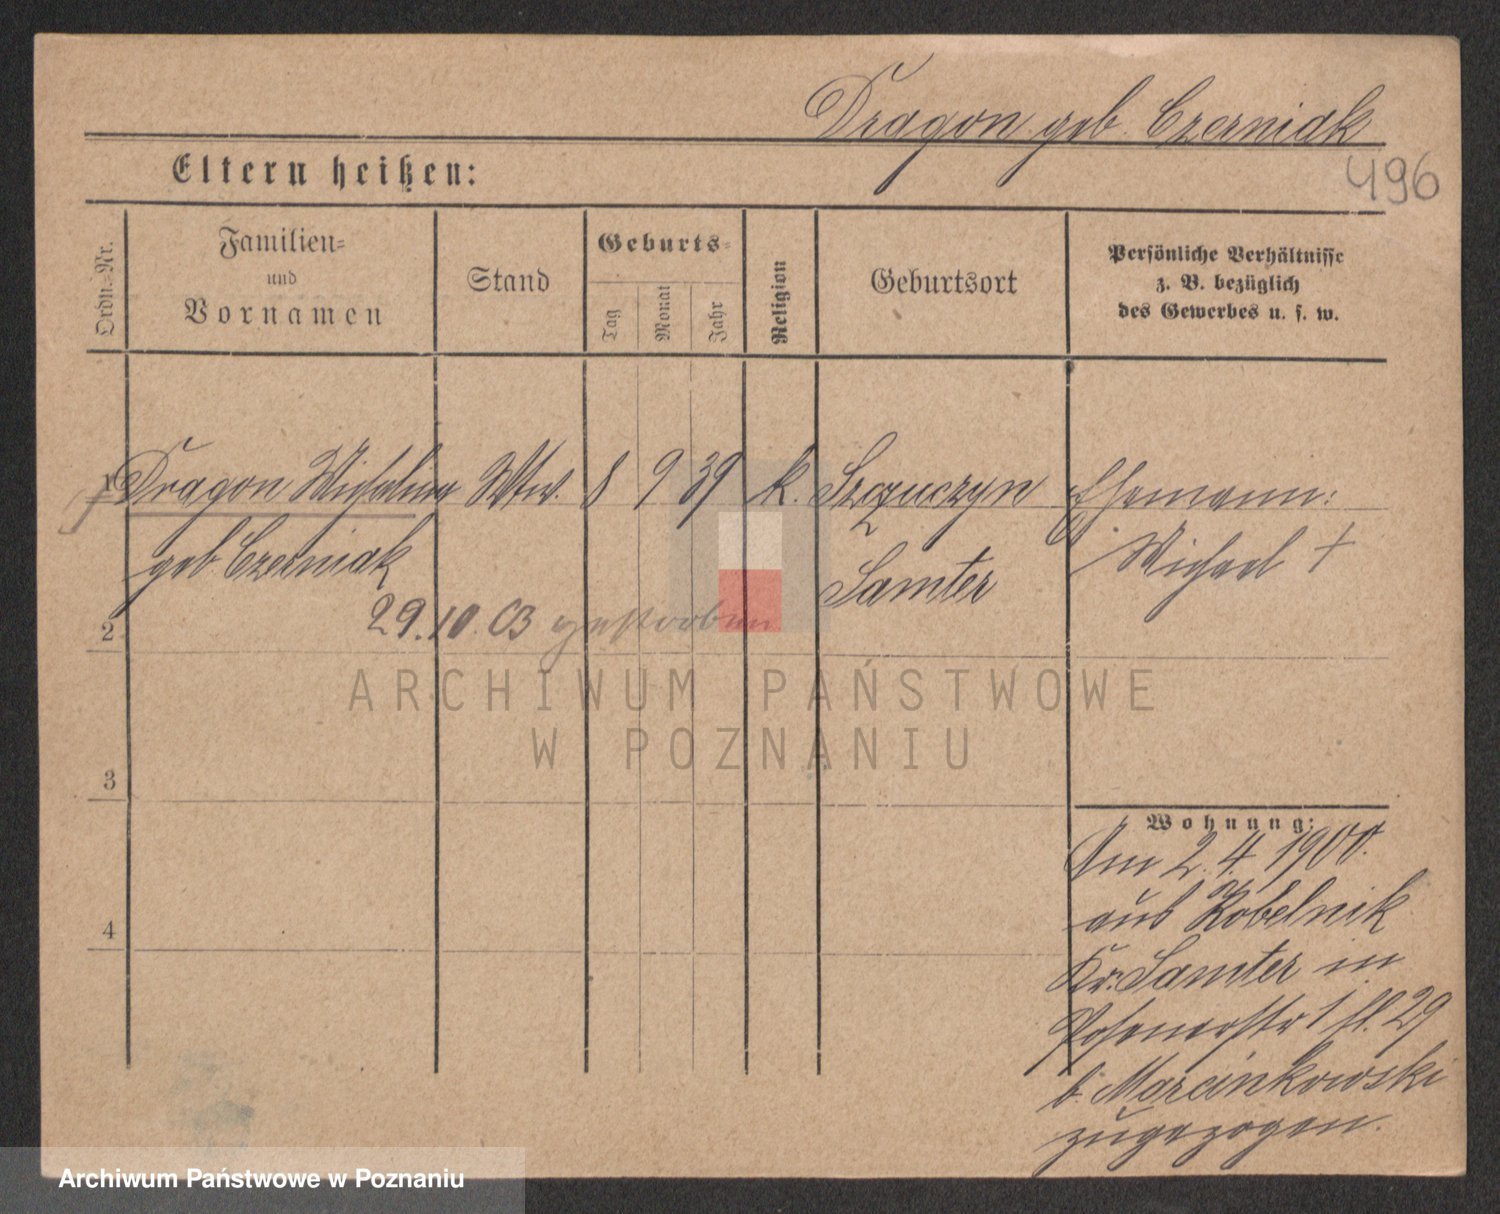 Dragon geb. Czerniak
496
Eltern heißen:
Ordn.-Nr.
Familien- und Vornamen
Stand
Geburts-
Tag
Monat
Jahr
Religion
Geburtsort
Persönliche Verhältnisse
z. B. bezüglich
des Gewerbes u. s. w.
1 Dragon Michalina Wtw. 8 9 39 k. Szczuczyn Ehemann:
geb. Czerniak Samter Michael †
29.10.03 gestorben
2
ARCHIWUM PAŃSTWOWE
W POZNANIU
3
Wohnung:
Am 2.4.1900.
aus Kobelnik
4
Kr. Samter in
Posenerstr 1 II. 29
b. Marcinkowski
zugezogen.
Archiwum Państwowe w Poznaniu